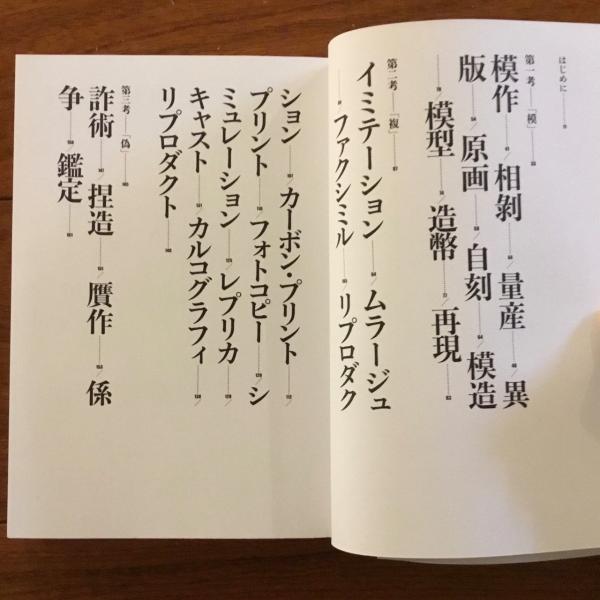 はじめに
第一考──「模」
模作 相剝 量産 異
版 原画 自刻 模造
模型 造幣 再現
第二考──「複」
イミテーション ムラージュ
ファクシミル リプロダク
ション カーボン・プリント
プリント フォトコピー シ
ミュレーション レプリカ
キャスト カルコグラフィ
リプロダクト
第三考──「偽」
詐術 捏造 贋作 係
争 鑑定